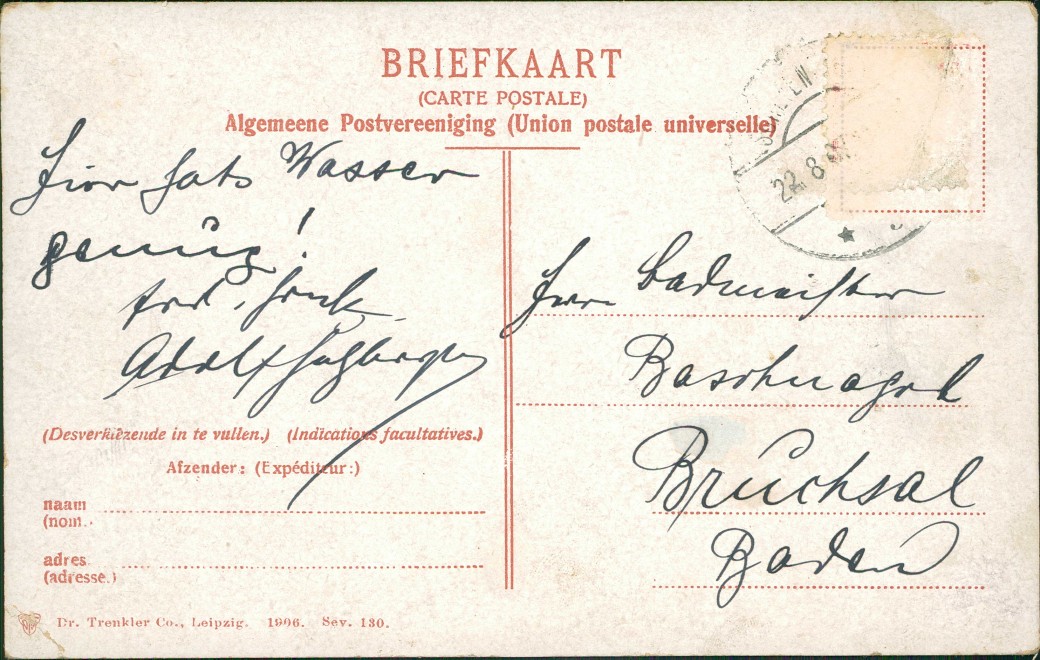 BRIEFKAART
(CARTE POSTALE)
Algemeene Postvereeniging (Union postale universelle)
22.8
Hier hats Wasser
genug!
Adolf
Herrn Bademeister
Baschnagel
Bruchsal
Baden
(Desverkiezende in te vullen.) (Indications facultatives.)
Afzender: (Expéditeur:)
naam
(nom.
adres.
(adresse.)
Dr. Trenkler Co., Leipzig. 1906. Sev. 130.